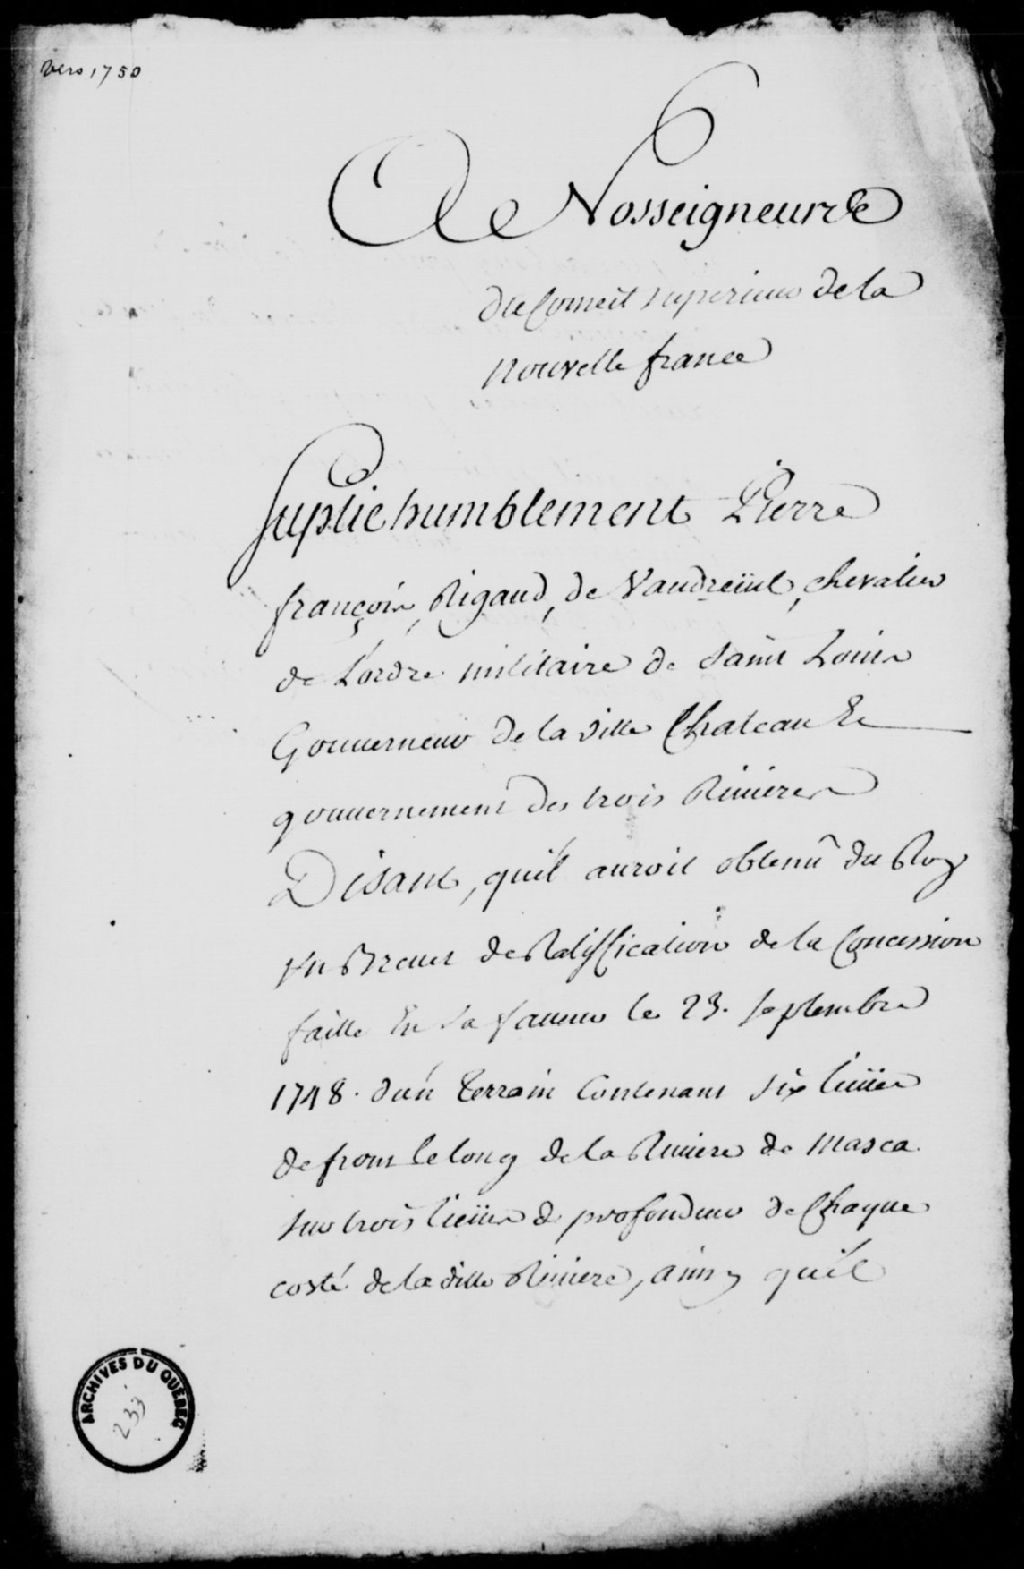 Vers 1750
A Nosseigneurs
du Conseil superieur de la
Nouvelle france
Suplie humblement Pierre
françois, Rigaud, de Vaudreüil, chevalier
de L'ordre militaire de Saint Louis
Gouverneur de la ville Chateau Et
gouvernement des trois Rivieres
Disant, qu'il auroit obtenû du Roy
un Brevet de Ratiffication de la Concession
faitte En sa faveur le 23. Septembre
1748. d'un terrain Contenant six lieües
de front le long de la Riviere de Masca
sur trois lieües de profondeur de Chaque
costé de la ditte Riviere, ainsy qu'il
ARCHIVES DU QUÉBEC
233